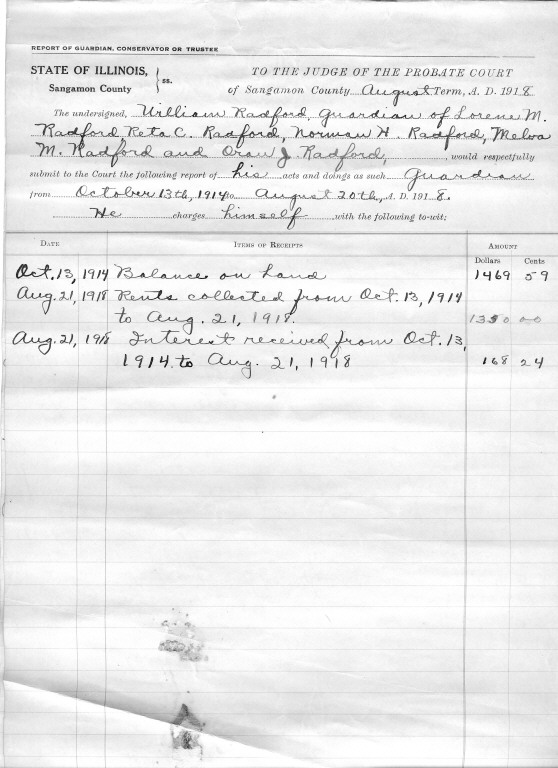 REPORT OF GUARDIAN, CONSERVATOR OR TRUSTEE
STATE OF ILLINOIS,
Sangamon County
ss.
TO THE JUDGE OF THE PROBATE COURT
of Sangamon County August Term, A. D. 1918
The undersigned, William Radford, guardian of Lorene M.
Radford Reta C. Radford, Norman H. Radford, Melva
M. Radford and Oran J. Radford, would respectfully
submit to the Court the following report of his acts and doings as such Guardian
from October 13th, 1914 to August 20th, A. D. 1918.
He charges himself with the following to-wit:
DATE ITEMS OF RECEIPTS AMOUNT
Dollars Cents
Oct. 13, 1914 Balance on hand 1469 59
Aug. 21, 1918 Rents collected from Oct. 13, 1914
to Aug. 21, 1918. 1350 00
Aug. 21, 1918 Interest received from Oct. 13,
1914 to Aug. 21, 1918 168 24